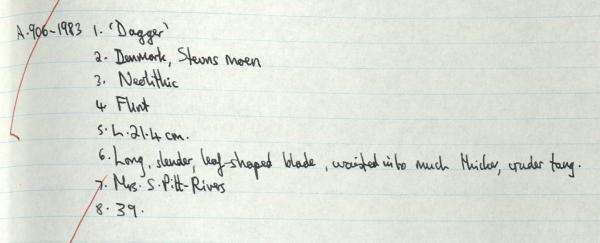 A.906-1983 1. 'Dagger'
2. Denmark, Stevns moen
3. Neolithic
4 Flint
5. L. 21.4 cm.
6. Long, slender, leaf-shaped blade, waisted into much thicker, cruder tang.
7. Mrs. S. Pitt-Rivers
8. 39.